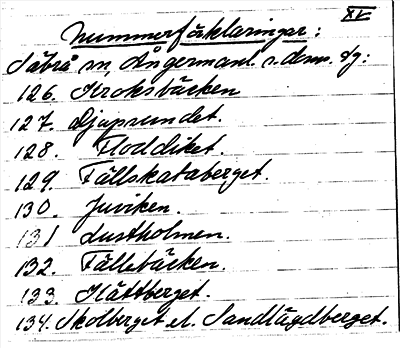 XV
Nummerförklaringar:
Säbrå sn, Ångermanl. s. doms. sg:
126. Kroksbäcken
127. Djupsundet.
128. Floddiket.
129. Fällskataberget.
130. Juviken.
131 Lustholmen.
132. Fällebäcken.
133. Hättberget.
134. Skolberget el. Sandlägdberget.